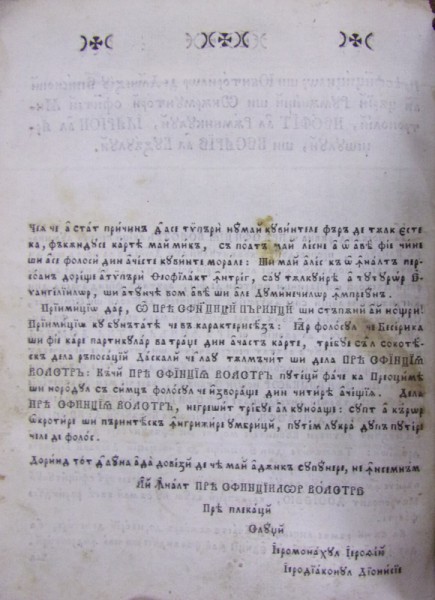 Чеа че а стат причинъ д'асе типъри нумаи кувинтеле фъръ де тълк єсте
ка, фъкѫндусе картѣ маи микъ, съ поатъ чаи лесне а ѡ авѣ фіе чине
ши асе фолоси дин ачесте кувинте морале: Ши маи алес къ ѡ ꙟналтъ пер-
соанъ дореще атипъри Ѳеофилакт ꙟтрег, сау тълкуирѣ а тутурѡр
вангелїилѡр, ши атунчѣ вом авѣ ши але Думинечилѡр ꙟмпреунъ.
Приимиціи дар, Ѡ ПРѢ СФИНЦИЦИ ПЪРИНЦИ ши стъпѫни аи нощри!
Приимиціи ку бунътате че въ характерисѣзъ: Iаръ фолосул че Бисѣрика
ши фіе каре партикулар ва траџе дин ачастъ карте, требуе съл сокотѣс-
къ дела ръпосаціи Даскали че лау тълмъчит ши дела ПРѢ СФИНЦІА
ВОАСТРЪ: Къчи ПРѢ СФИНЦІА ВОАСТРЪ путеци фаче ка Преоцимѣ
ши нородул съ симцъ фолосул че извораще дин читирѣ ачещіа. Дела
ПРѢ СФИНЦІА ВОАСТРЪ, негрешит требуе ал куноаще: Супт а кърѡр
ѡкротире ши пъринтѣскъ ꙟгрижире умбриціи, путем лукра дупъ путирѣ
челе де фолос.
Доринд тот д'ауна ада довези де че маи адѫнкъ супунере, не ꙟсемнъм
Аи ꙟналт ПРѢ СФИНЦІИЛѠР ВОАСТРЕ
Прѣ плекаци
Слуџи
Іеромонахул Іероѳеи
Іеродіаконул Діонисіе